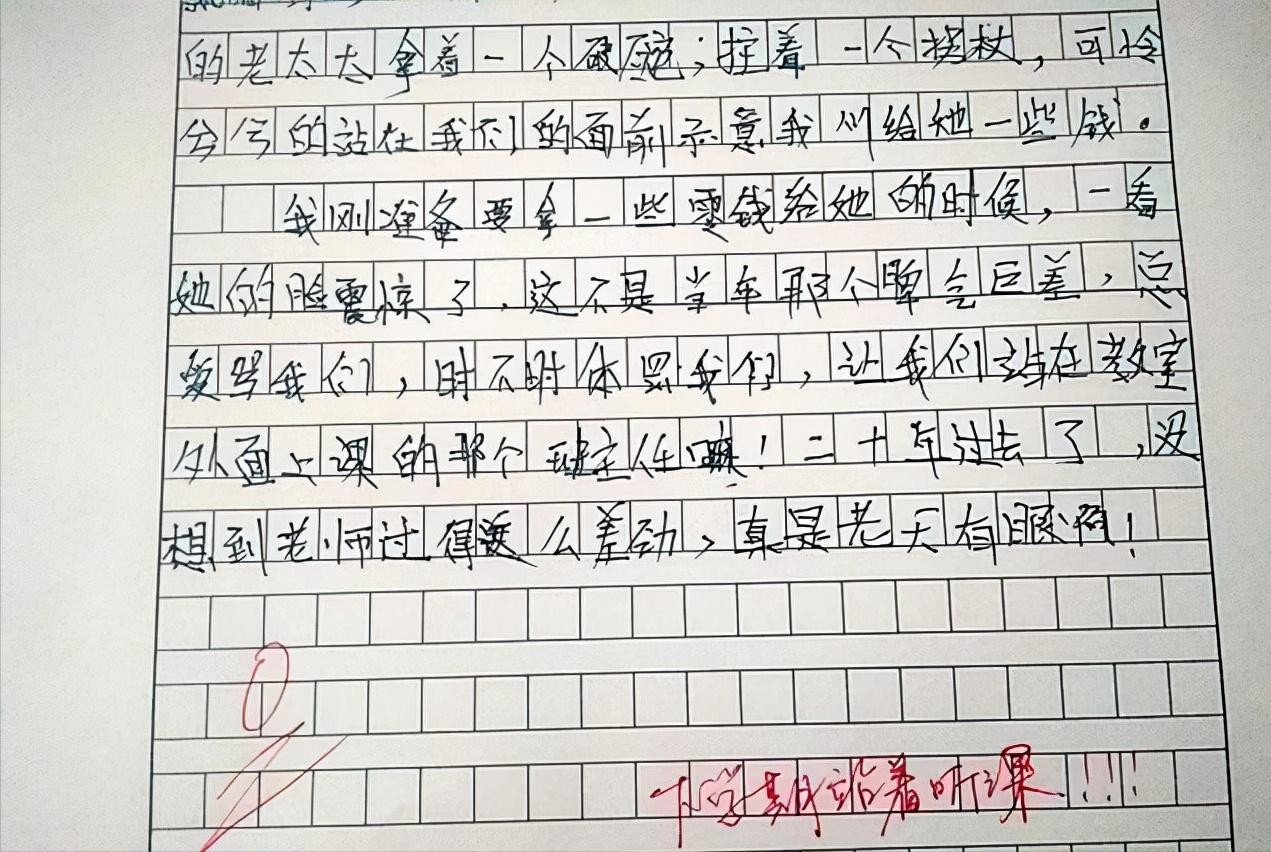 的老太太拿着一个破碗;拄着一个拐杖,可怜
兮兮的站在我们的面前示意我们给她一些钱。
我刚准备要拿一些零钱给她的时候,一看
她的脸震惊了,这不是当年那个脾气巨差,总
爱骂我们,时不时体罚我们,让我们站在教室
外面上课的那个班主任嘛!二十年过去了,没
想到老师过得这么差劲,真是老天有眼啊!
0
下学期站着听课!!!!